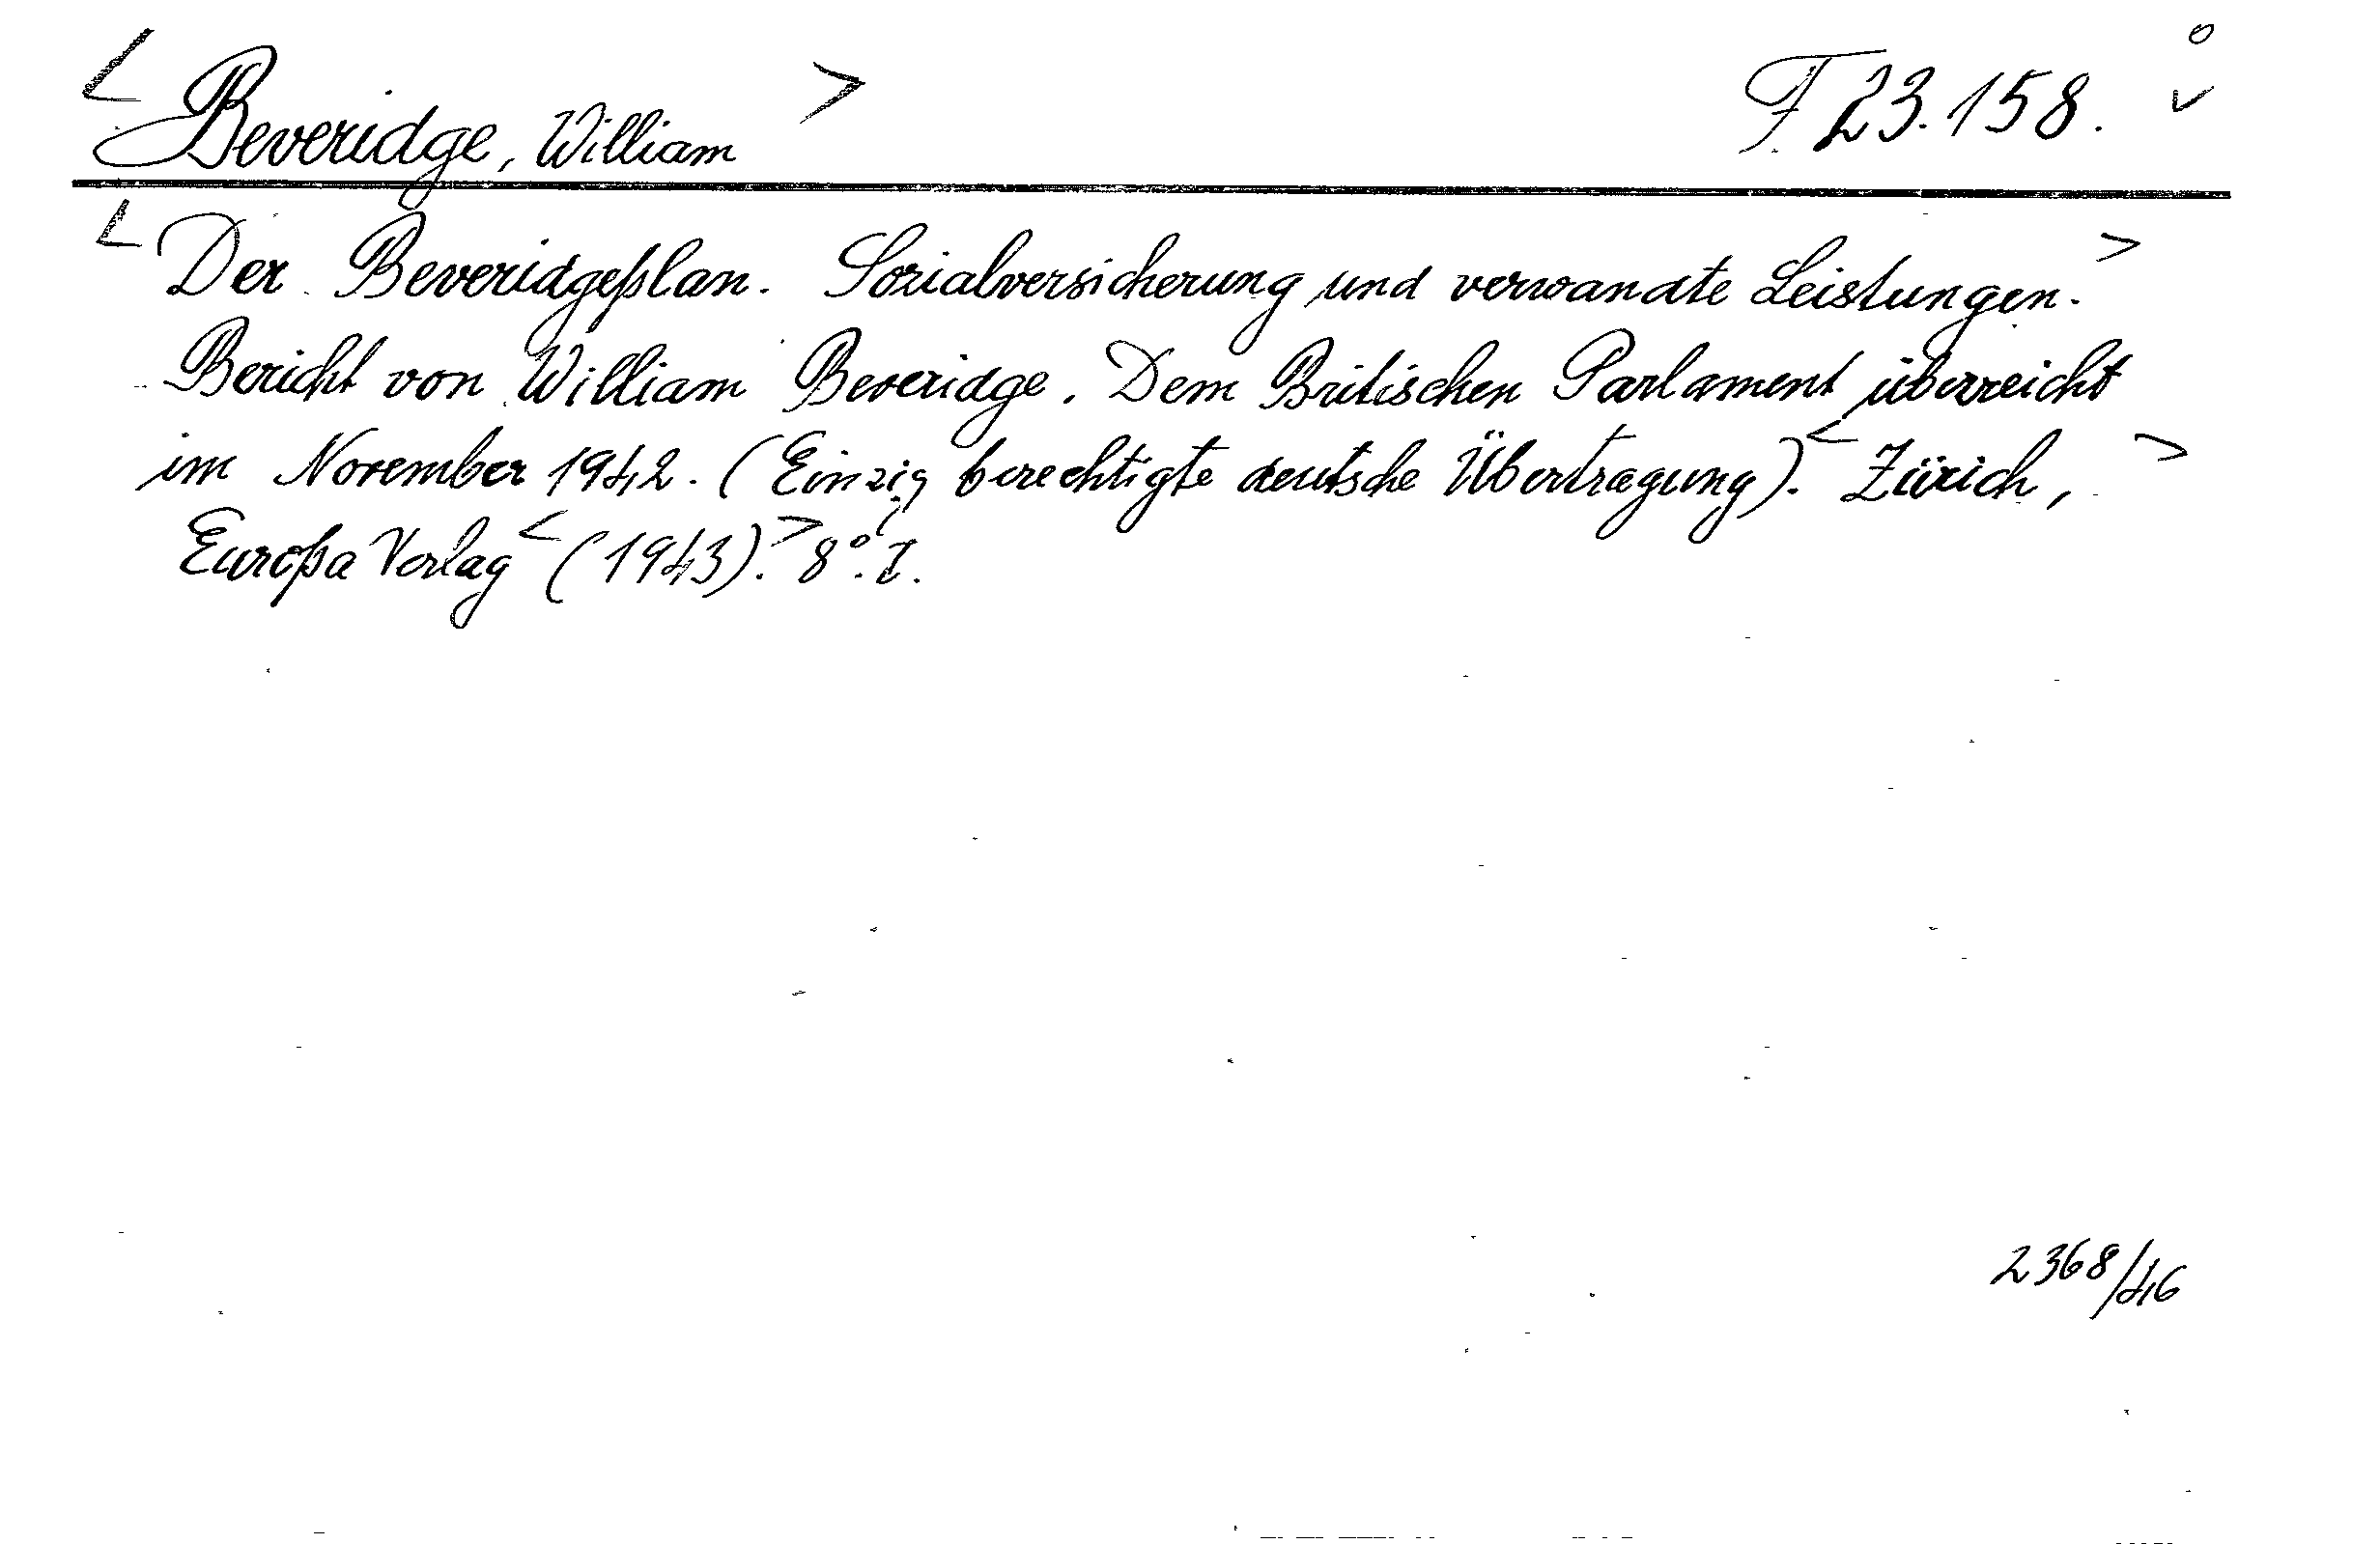 < Beveridge, William > F 23.158.
< Der Beveridgeplan. Sozialversicherung und verwandte Leistungen. >
Bericht von William Beveridge. Dem Britischen Parlament überreicht
im November 1942. (Einzig berechtigte deutsche Übertragung). < Zürich, >
Europa Verlag < (1943). > 8°.
2368/46